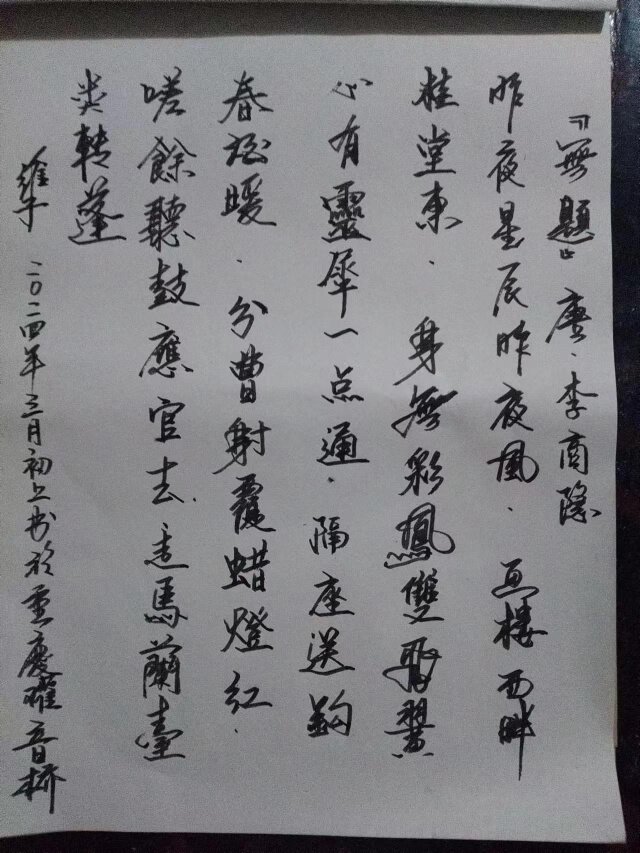 『無題』唐·李商隐
昨夜星辰昨夜風.画楼西畔
桂堂東.身無彩鳳雙飛翼
心有靈犀一点通.隔座送鈎
春酒暖.分曹射覆蜡燈红.
嗟餘聽鼓應官去.走馬蘭臺
类转蓬
二〇二四年三月初上书於重慶觀音桥